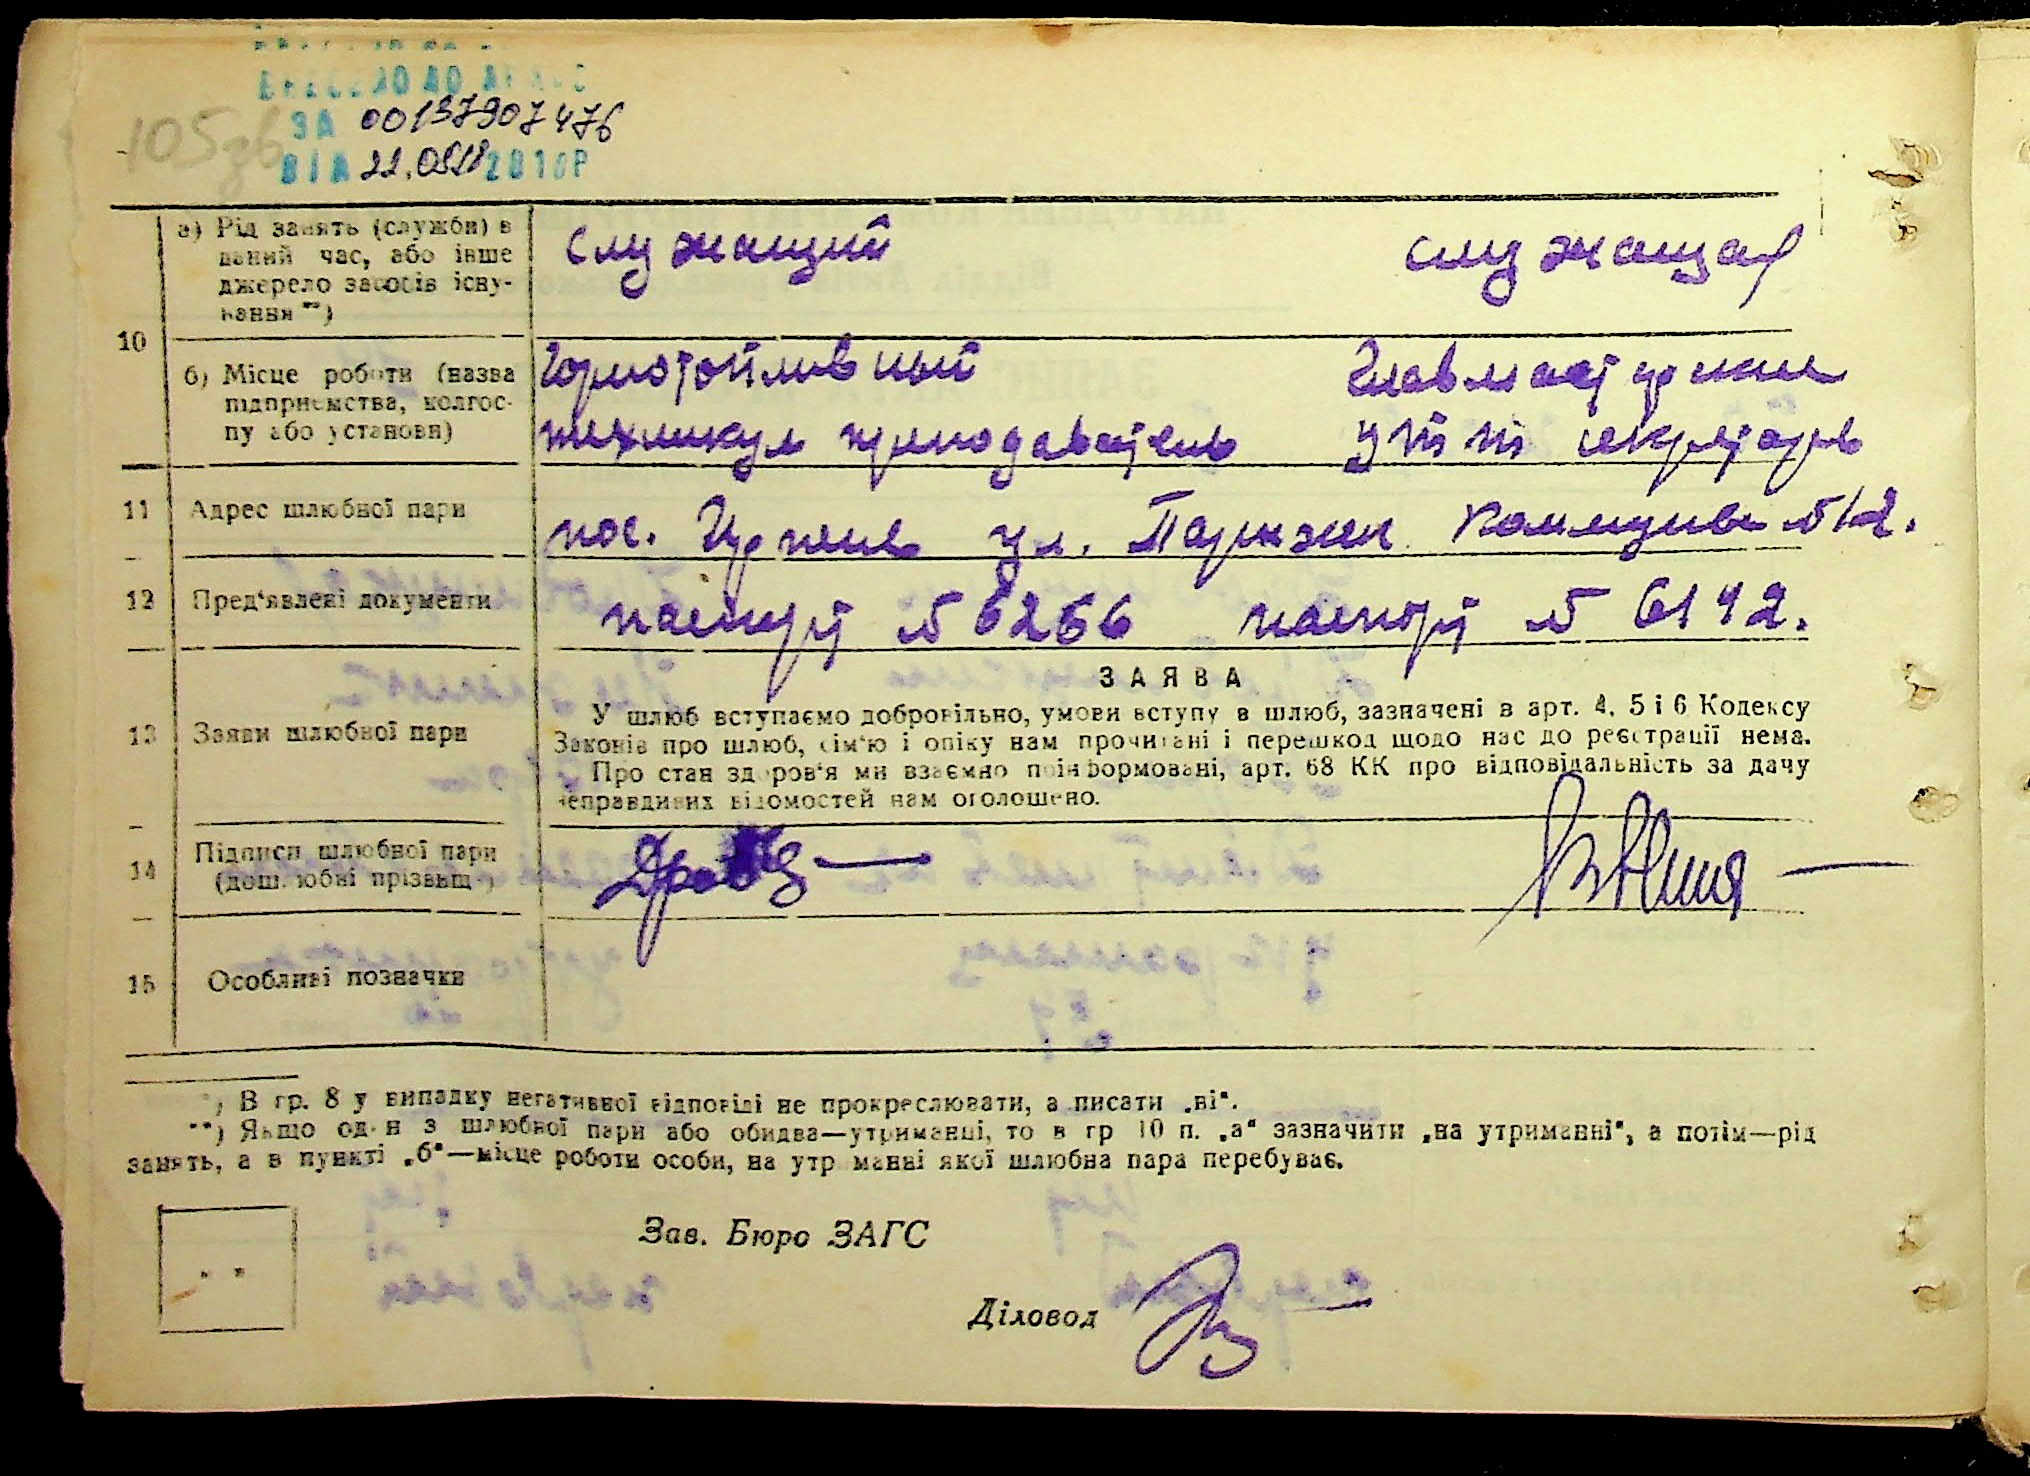 ВНЕСЕНО ДО ДРАЦС
ЗА 00137907476
ВІД 22.0818 2018Р
105зв
10
а) Рід занять (служби) в даний час, або інше джерело засобів існування **)
служащий служащая
б) Місце роботи (назва підприємства, колгоспу або установи)
Гормотопливный
техникум преподаватель
секретарь
11 Адрес шлюбної пари
пос. Ирпень ул. Парижск. Коммуны №12.
12 Пред'явлені документи
паспорт № 6266 паспорт № 6142.
13 Заяви шлюбної пари
ЗАЯВА
У шлюб вступаємо добровільно, умови вступу в шлюб, зазначені в арт. 4, 5 і 6 Кодексу
Законів про шлюб, сім'ю і опіку нам прочитані і перешкод щодо нас до реєстрації нема.
Про стан здоров'я ми взаємно поінформовані, арт. 68 КК про відповідальність за дачу
неправдивих відомостей нам оголошено.
14 Підписи шлюбної пари
(дошлюбні прізвища)
15 Особливі позначки
*) В гр. 8 у випадку негативної відповіді не прокреслювати, а писати „ні“.
**) Якщо один з шлюбної пари або обидва—утриманці, то в гр 10 п. „а“ зазначити „на утриманні“, а потім—рід
занять, а в пункті „б“—місце роботи особи, на утриманні якої шлюбна пара перебуває.
Зав. Бюро ЗАГС
Діловод